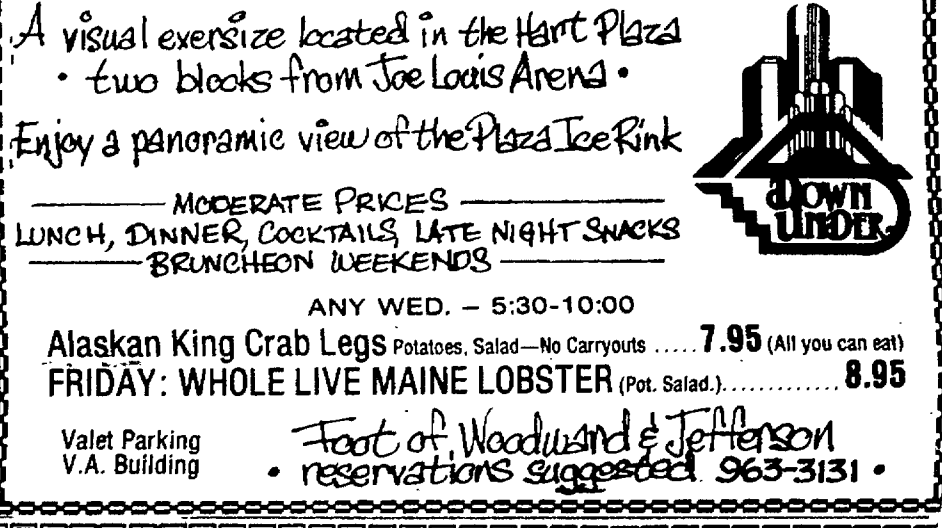 A visual exersize located in the Hart Plaza
• two blocks from Joe Louis Arena •
Enjoy a panoramic view of the Plaza Ice Rink
DOWN
UNDER
MODERATE PRICES
LUNCH, DINNER, COCKTAILS, LATE NIGHT SNACKS
BRUNCHEON WEEKENDS
ANY WED. – 5:30-10:00
Alaskan King Crab Legs Potatoes, Salad—No Carryouts ..... 7.95 (All you can eat)
FRIDAY: WHOLE LIVE MAINE LOBSTER (Pot. Salad.)............. 8.95
Valet Parking
V.A. Building
Foot of Woodward & Jefferson
• reservations suggested 963-3131 •